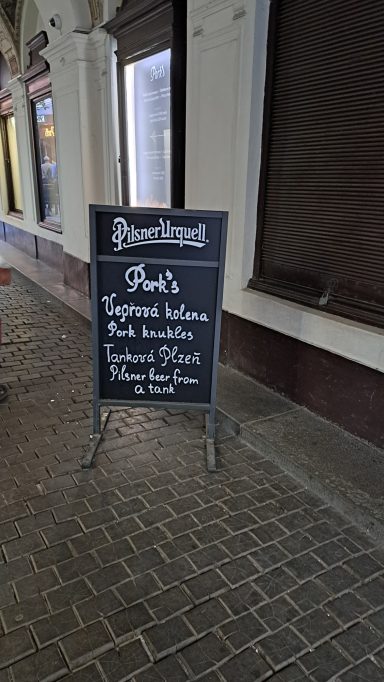 Pork's
Pilsner Urquell
Pork's
Vepřová kolena
Pork knukles
Tanková Plzeň
Pilsner beer from
a tank